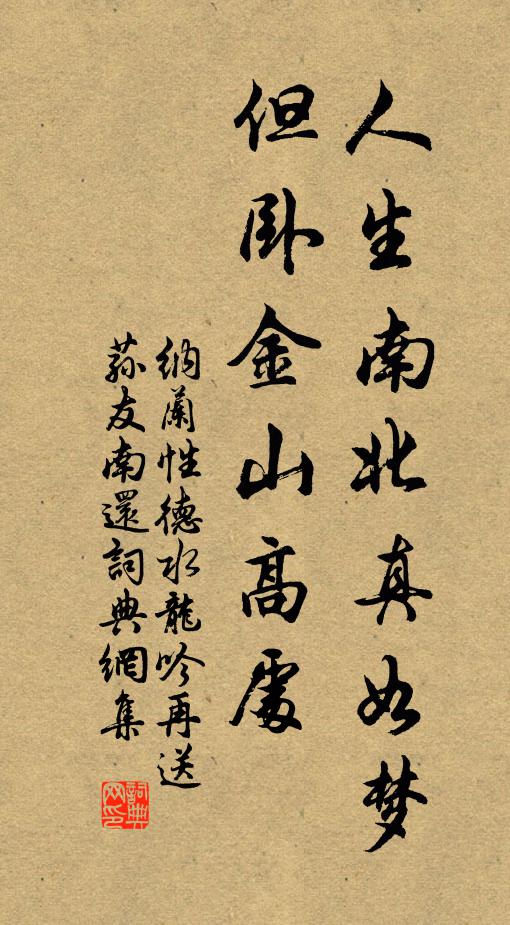 人生南北真如梦
但卧金山高處
納蘭性德水龍吟再送
蓀友南還詞典網集
詞典网印